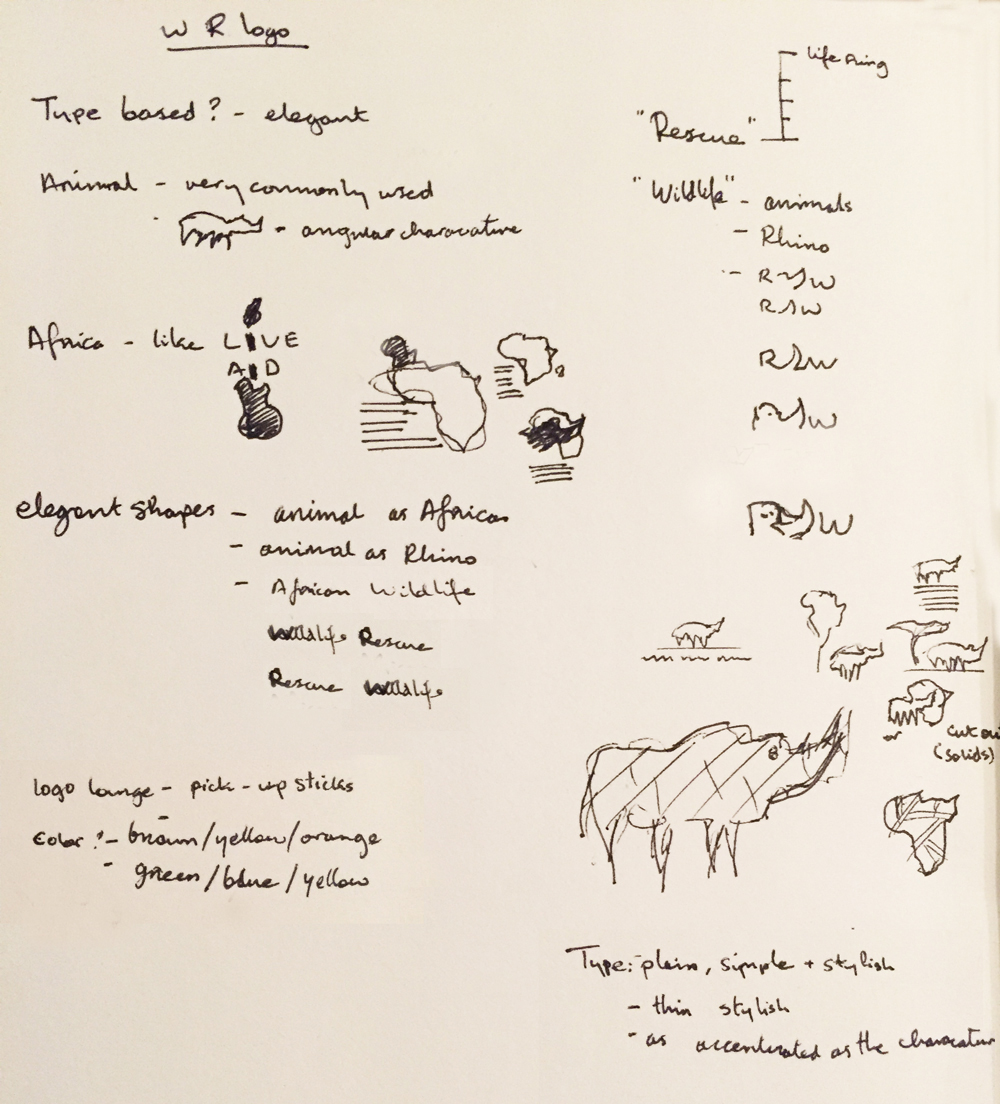 W R logo
Type based? - elegant
Animal - very commonly used
- angular characature
Africa - like LIVE
AID
elegant shapes - animal as Africa
- animal as Rhino
- African Wildlife
Wildlife Rescue
Rescue Wildlife
logo lounge - pick-up sticks
Color? - brown/yellow/orange
- green/blue/yellow
life ring
"Rescue"
"Wildlife" - animals
- Rhino
- R W
R W
R W
W
W
cut out
(solids)
Type: plain, simple + stylish
- thin stylish
- as accentuated as the characature